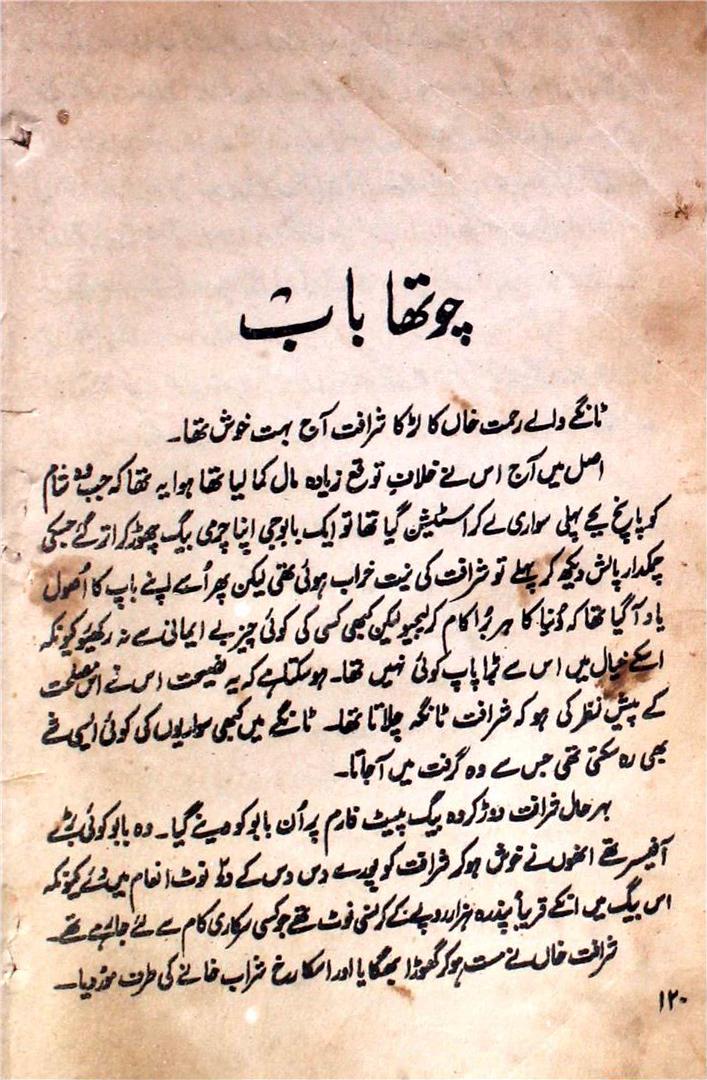 چوتھا باب
ٹانگے والے رحمت خاں کا لڑکا شرافت آج بہت خوش تھا۔
اصل میں آج اس نے خلافِ توقع زیادہ مال کما لیا تھا ہوا یہ تھا کہ جب وہ شام
کو پانچ بجے پہلی سواری لے کر اسٹیشن گیا تھا تو ایک بابوجی اپنا چرمی بیگ چھوڑ کر اتر گئے جسکی
چمکدار پالش دیکھ کر پہلے تو شرافت کی نیت خراب ہوئی تھی لیکن پھر اُسے اپنے باپ کا اُصول
یاد آگیا تھا کہ دُنیا کا ہر بُرا کام کر لیجیو لیکن کبھی کسی کی کوئی چیز بے ایمانی سے نہ رکھیئو کیونکہ
اسکے خیال میں اس سے بڑا پاپ کوئی نہیں تھا۔ ہوسکتا ہے کہ یہ نصیحت اس نے اس مصلحت
کے پیش نظر کی ہو کہ شرافت ٹانگہ چلاتا تھا۔ ٹانگے میں کبھی سواریوں کی کوئی ایسی شے
بھی رہ سکتی تھی جس سے وہ گرفت میں آجاتا۔
بہرحال شرافت دوڑ کر وہ بیگ پلیٹ فارم پر اُن بابو کو دینے گیا۔ وہ بابو کوئی بڑے
آفیسر تھے انھوں نے خوش ہو کر شرافت کو پورے دس دس کے دو نوٹ انعام میں دئے کیونکہ
اس بیگ میں انکے قریباً پندرہ ہزار روپے کے کرنسی نوٹ تھے جو کسی سرکاری کام سے لئے جارہے تھے۔
شرافت خاں نے مست ہو کر گھوڑا بھگایا اور اسکا رخ شراب خانے کی طرف موڑ دیا۔
۱۲۰